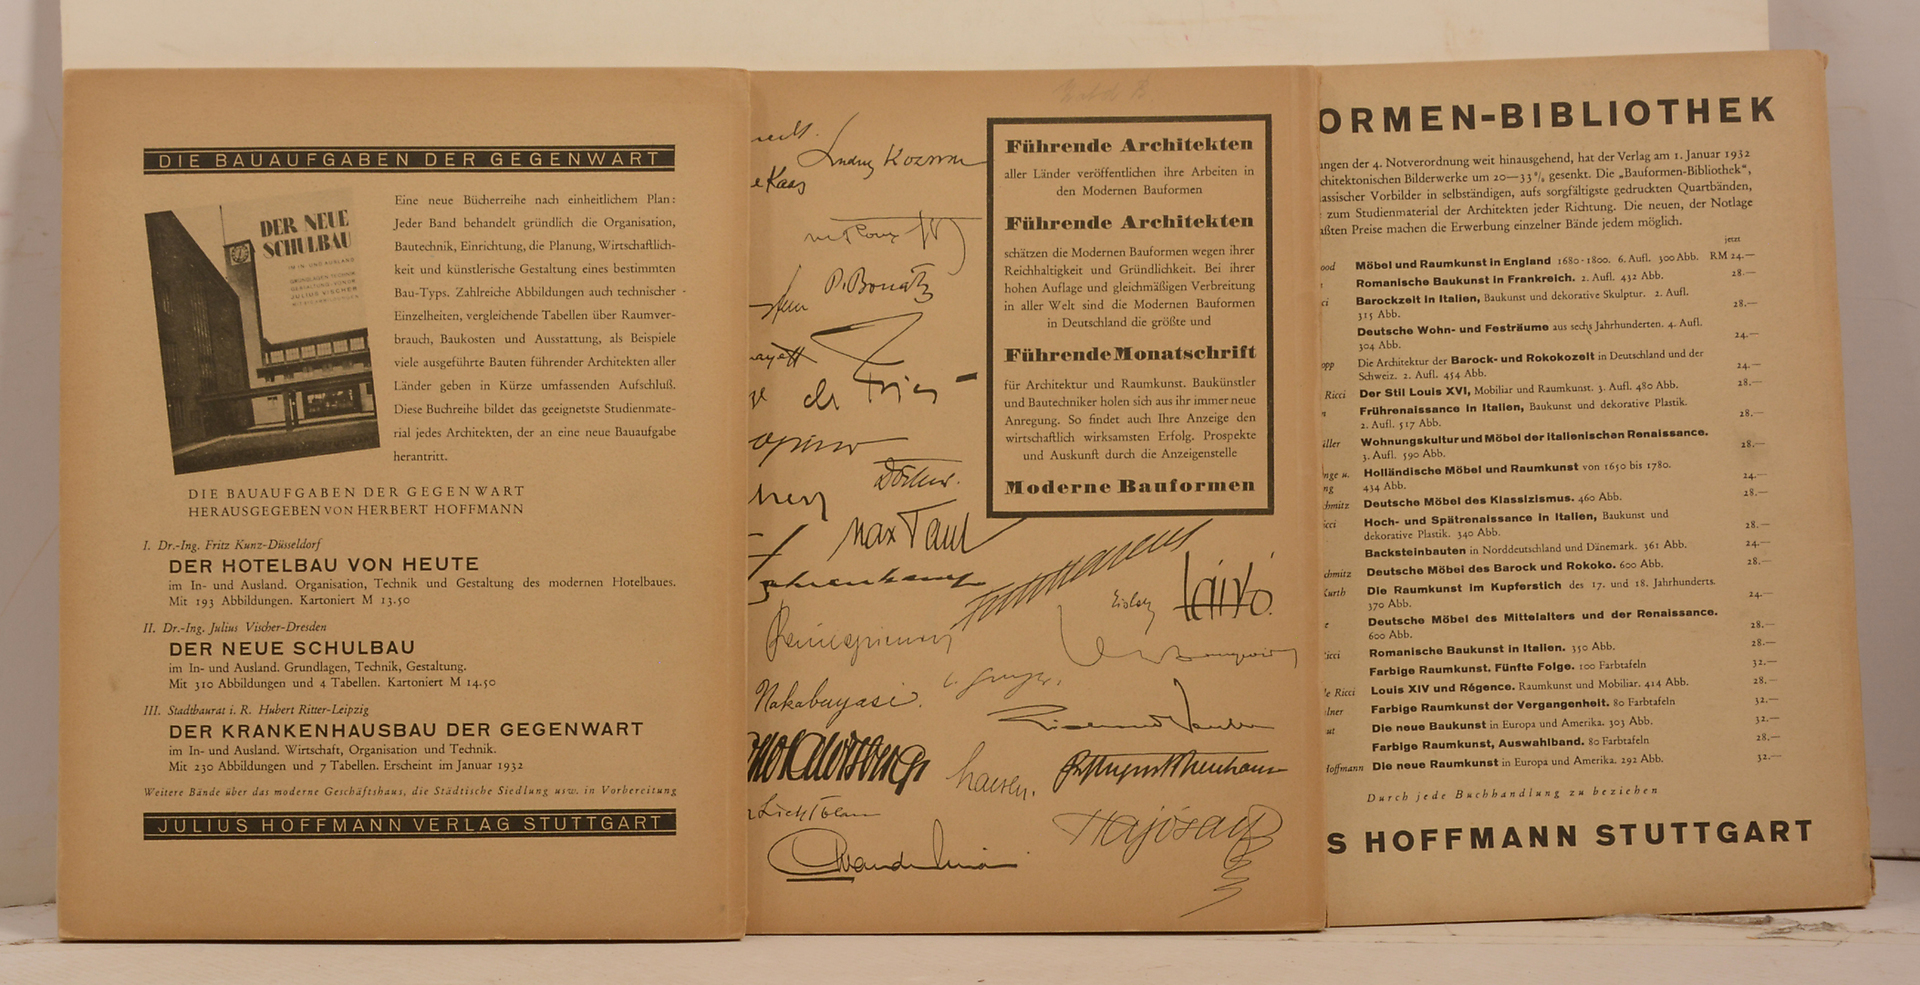 DIE BAUAUFGABEN DER GEGENWART
DER NEUE
SCHULBAU
IM IN- UND AUSLAND
JULIUS VISCHER
Eine neue Bücherreihe nach einheitlichem Plan:
Jeder Band behandelt gründlich die Organisation,
Bautechnik, Einrichtung, die Planung, Wirtschaftlich-
keit und künstlerische Gestaltung eines bestimmten
Bau-Typs. Zahlreiche Abbildungen auch technischer
Einzelheiten, vergleichende Tabellen über Raumver-
brauch, Baukosten und Ausstattung, als Beispiele
viele ausgeführte Bauten führender Architekten aller
Länder geben in Kürze umfassenden Aufschluß.
Diese Buchreihe bildet das geeignetste Studienmate-
rial jedes Architekten, der an eine neue Bauaufgabe
herantritt.
DIE BAUAUFGABEN DER GEGENWART
HERAUSGEGEBEN VON HERBERT HOFFMANN
I. Dr.-Ing. Fritz Kunz-Düsseldorf
DER HOTELBAU VON HEUTE
im In- und Ausland. Organisation, Technik und Gestaltung des modernen Hotelbaues.
Mit 193 Abbildungen. Kartoniert M 13.50
II. Dr.-Ing. Julius Vischer-Dresden
DER NEUE SCHULBAU
im In- und Ausland. Grundlagen, Technik, Gestaltung.
Mit 310 Abbildungen und 4 Tabellen. Kartoniert M 14.50
III. Stadtbaurat i. R. Hubert Ritter-Leipzig
DER KRANKENHAUSBAU DER GEGENWART
im In- und Ausland. Wirtschaft, Organisation und Technik.
Mit 230 Abbildungen und 7 Tabellen. Erscheint im Januar 1932
Weitere Bände über das moderne Geschäftshaus, die Städtische Siedlung usw. in Vorbereitung
JULIUS HOFFMANN VERLAG STUTTGART
e Kaas
P. Bonatz
de Fries
Döcker.
Max Taut
Nakabayasi.
haesen.
Führende Architekten
aller Länder veröffentlichen ihre Arbeiten in
den Modernen Bauformen
Führende Architekten
schätzen die Modernen Bauformen wegen ihrer
Reichhaltigkeit und Gründlichkeit. Bei ihrer
hohen Auflage und gleichmäßigen Verbreitung
in aller Welt sind die Modernen Bauformen
in Deutschland die größte und
Führende Monatschrift
für Architektur und Raumkunst. Baukünstler
und Bautechniker holen sich aus ihr immer neue
Anregung. So findet auch Ihre Anzeige den
wirtschaftlich wirksamsten Erfolg. Prospekte
und Auskunft durch die Anzeigenstelle
Moderne Bauformen
ORMEN-BIBLIOTHEK
ungen der 4. Notverordnung weit hinausgehend, hat der Verlag am 1. Januar 1932
chitektonischen Bilderwerke um 20—33⅓% gesenkt. Die „Bauformen-Bibliothek“,
assischer Vorbilder in selbständigen, aufs sorgfältigste gedruckten Quartbänden,
zum Studienmaterial der Architekten jeder Richtung. Die neuen, der Notlage
aßten Preise machen die Erwerbung einzelner Bände jedem möglich.
jetzt
ood Möbel und Raumkunst in England 1680-1800. 6. Aufl. 300 Abb. RM 24.—
Romanische Baukunst in Frankreich. 2. Aufl. 432 Abb. 28.—
ci Barockzeit in Italien, Baukunst und dekorative Skulptur. 2. Aufl.
315 Abb. 28.—
Deutsche Wohn- und Festräume aus sechs Jahrhunderten. 4. Aufl.
304 Abb. 24.—
opp Die Architektur der Barock- und Rokokozeit in Deutschland und der
Schweiz. 2. Aufl. 454 Abb. 24.—
Ricci Der Stil Louis XVI, Mobiliar und Raumkunst. 3. Aufl. 480 Abb. 28.—
Frührenaissance in Italien, Baukunst und dekorative Plastik.
2. Aufl. 517 Abb. 28.—
üller Wohnungskultur und Möbel der Italienischen Renaissance.
3. Aufl. 590 Abb. 28.—
nge u. Holländische Möbel und Raumkunst von 1650 bis 1780.
ng 434 Abb. 24.—
hmitz Deutsche Möbel des Klassizismus. 460 Abb. 28.—
icci Hoch- und Spätrenaissance in Italien, Baukunst und
dekorative Plastik. 340 Abb. 28.—
Backsteinbauten in Norddeutschland und Dänemark. 361 Abb. 24.—
chmitz Deutsche Möbel des Barock und Rokoko. 600 Abb. 28.—
Kurth Die Raumkunst im Kupferstich des 17. und 18. Jahrhunderts.
370 Abb. 24.—
Deutsche Möbel des Mittelalters und der Renaissance.
600 Abb. 28.—
icci Romanische Baukunst in Italien. 350 Abb. 28.—
Farbige Raumkunst. Fünfte Folge. 100 Farbtafeln 32.—
e Ricci Louis XIV und Régence. Raumkunst und Mobiliar. 414 Abb. 28.—
lner Farbige Raumkunst der Vergangenheit. 80 Farbtafeln 32.—
ut Die neue Baukunst in Europa und Amerika. 303 Abb. 32.—
Farbige Raumkunst, Auswahlband. 80 Farbtafeln 28.—
Hoffmann Die neue Raumkunst in Europa und Amerika. 292 Abb. 32.—
Durch jede Buchhandlung zu beziehen
S HOFFMANN STUTTGART